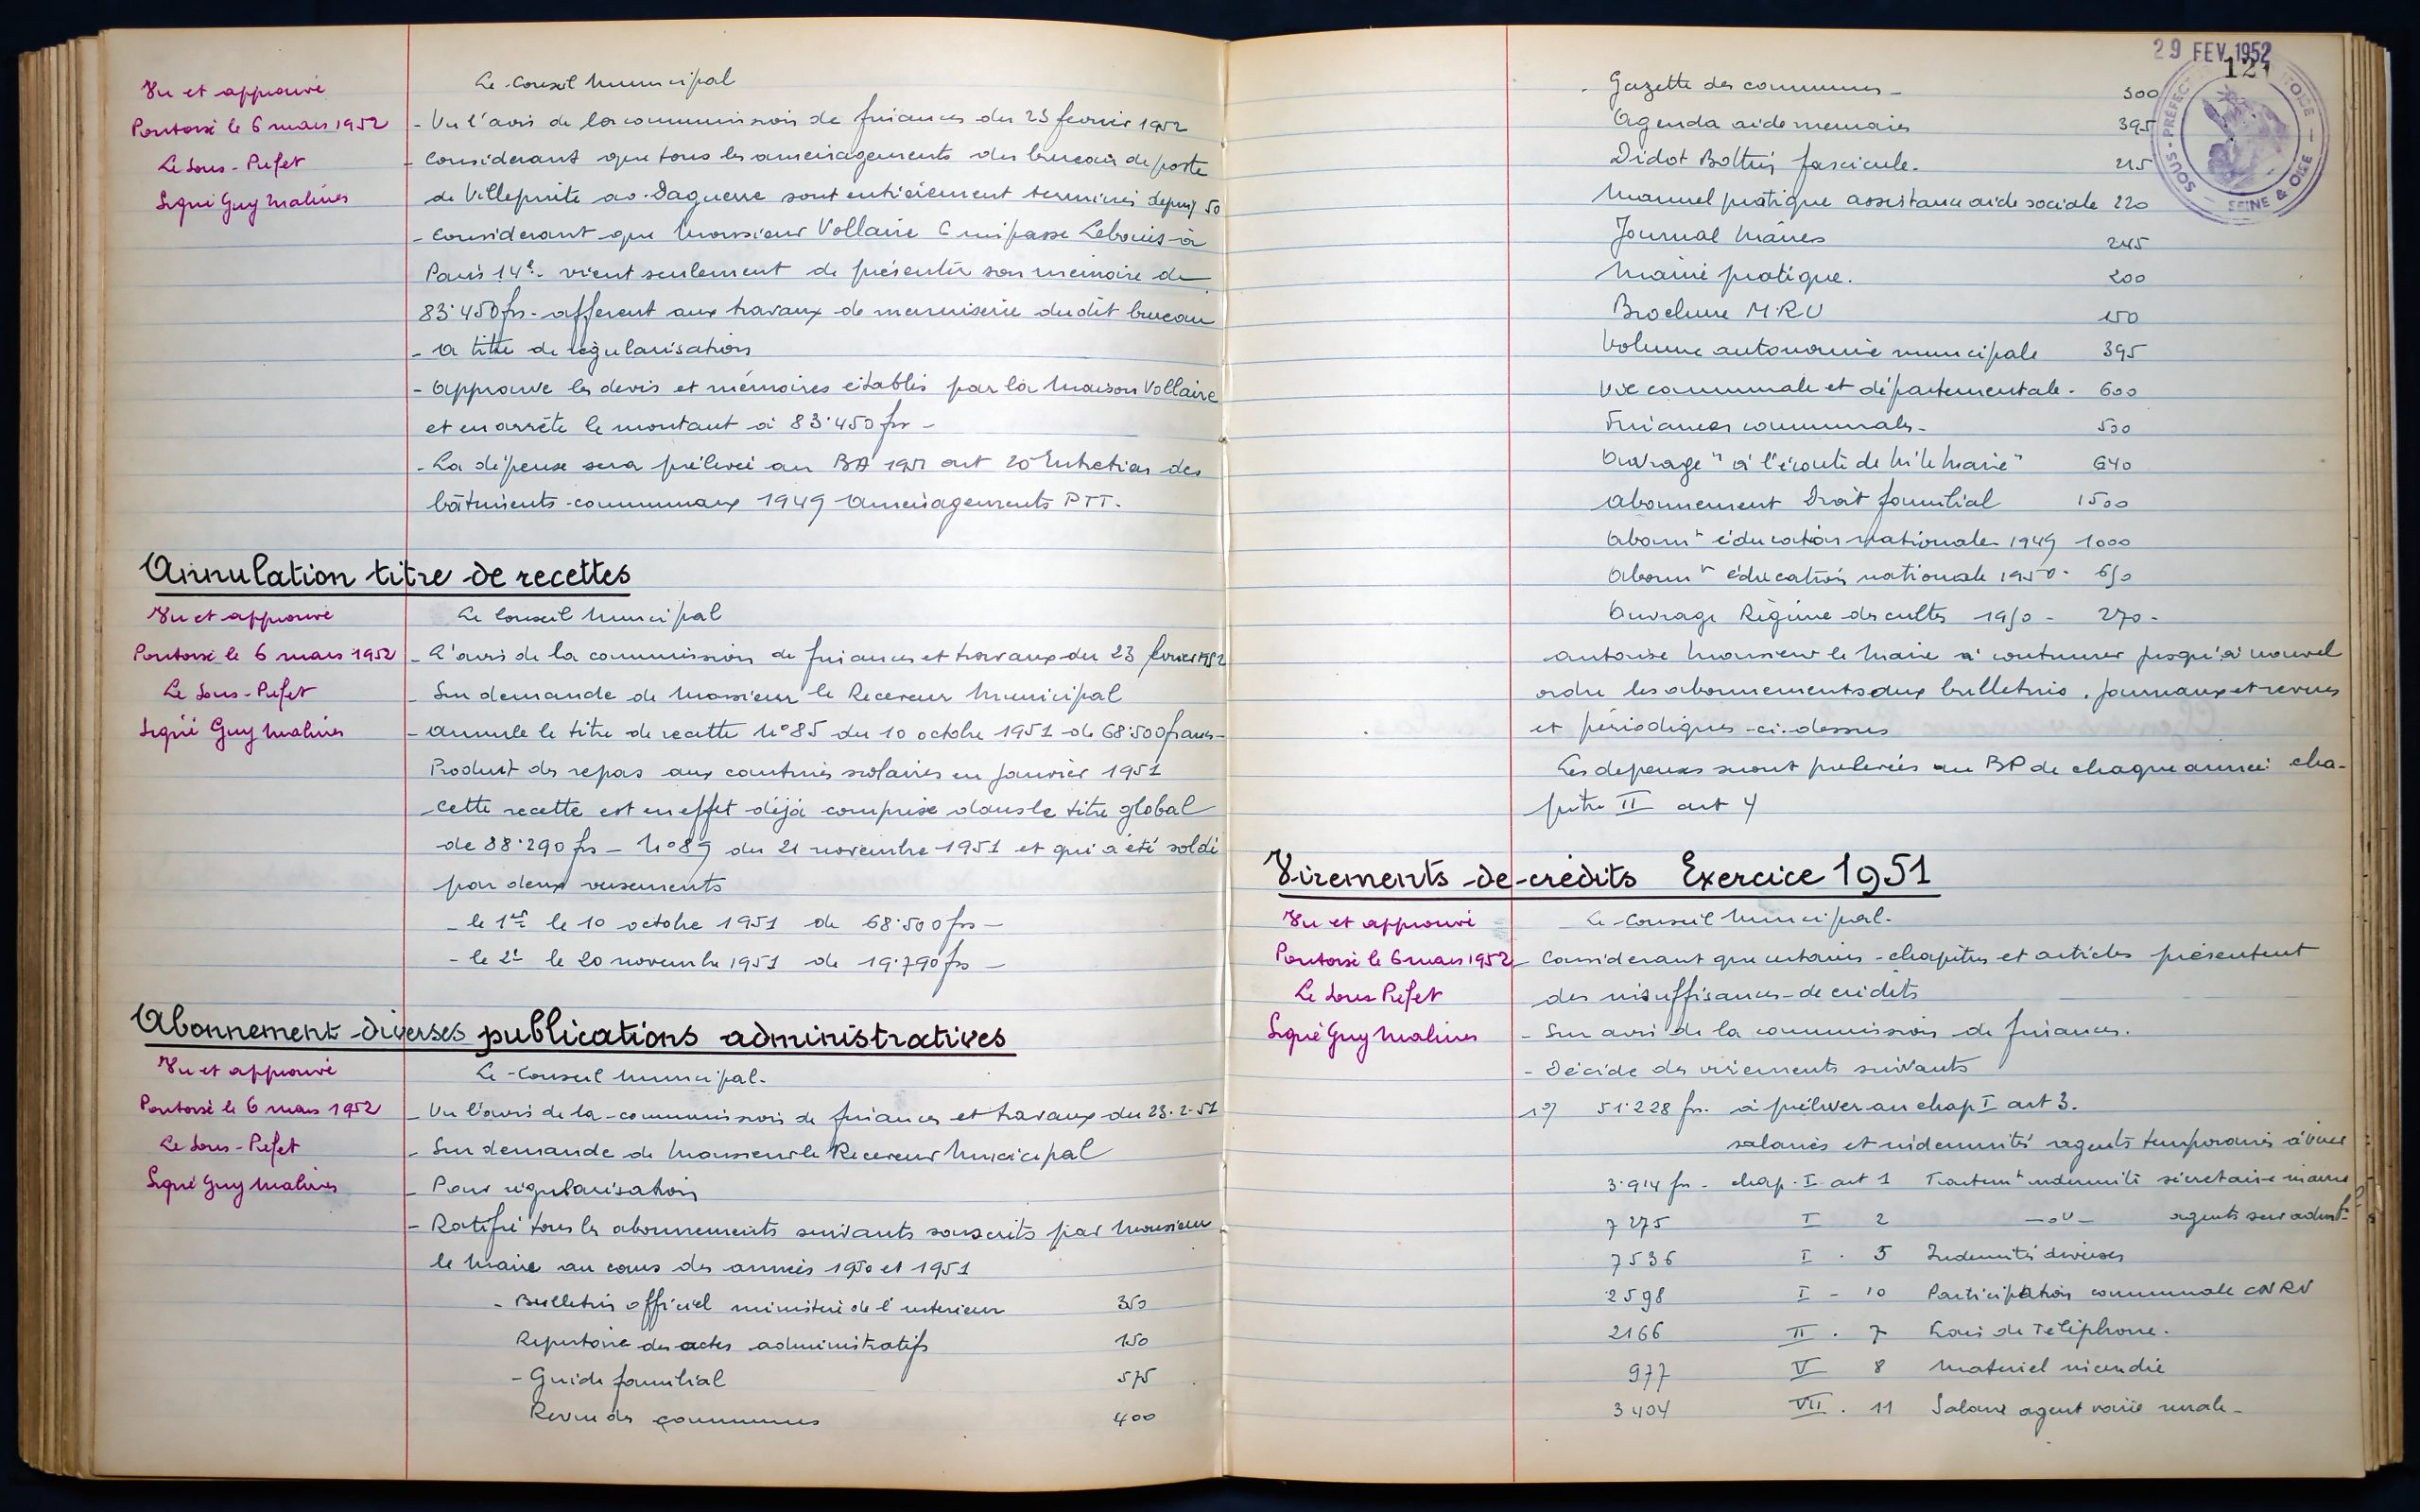 Vu et approuvé
Pontoise le 6 mars 1952
Le Sous-Préfet
Signé Guy Malines
Le Conseil Municipal
- Vu l'avis de la commission de finances du 23 fevrier 1952
- Considerant que tous les amenagements du bureau de poste
de Villepinte av. Daguerre sont entièrement terminés depuis 50
- Considerant que Monsieur Vollaire 6 impasse Lebouis à
Paris 14e. vient seulement de présenter son mémoire de
83.450 frs. afferent aux travaux de menuiserie dudit bureau
- a titre de régularisation
- Approuve les devis et mémoires établis par la Maison Vollaire
et en arrête le montant à 83.450 frs -
- La dépense sera prélevée au BA 1951 art 20 Entretien des
bâtiments communaux 1949 amenagements PTT.
Annulation titre de recettes
Vu et approuvé
Pontoise le 6 mars 1952
Le Sous-Préfet
Signé Guy Malines
Le Conseil Municipal
- L'avis de la commission de finances et travaux du 23 fevrier 1952
- Sur demande de Monsieur le Receveur Municipal
- Annule le titre de recette N°85 du 10 octobre 1951 de 68.500 francs -
Produit des repas aux cantines scolaires en Janvier 1951
cette recette est en effet déjà comprise dans le titre global
de 88.290 frs - N°89 du 21 novembre 1951 et qui a été soldé
par deux versements
- le 1er le 10 octobre 1951 de 68.500 frs -
- le 2e le 20 novembre 1951 de 19.790 frs -
Abonnement diverses publications administratives
Vu et approuvé
Pontoise le 6 mars 1952
Le Sous-Préfet
Signé Guy Malines
Le Conseil Municipal.
- Vu l'avis de la commission de finances et travaux du 23.2.51
- Sur demande de Monsieur le Receveur Municipal
- Pour régularisation
- Ratifie tous les abonnements suivants souscrits par Monsieur
le Maire au cours des années 1950 et 1951
- Bulletin officiel ministère de l'interieur 350
Repertoire des actes administratifs 150
- Guide familial 575
Revue des communes 400
29 FEV. 1952
121
SOUS-PRÉFECTURE PONTOISE - SEINE & OISE -
- Gazette des communes - 300
Agenda aide memoire 395
Didot Bottin fascicule. 215
Manuel pratique assistance aide sociale 220
Journal Maires 245
Mairie pratique. 200
Brochure M.R.U 150
Volume autonomie municipale 395
Vie communale et départementale - 600
Finances communales - 500
Ouvrage "à l'écoute de M. le Maire" 640
Abonnement Droit familial 1500
Abonnt éducation nationale 1949 1000
Abonnt éducation nationale 1950 - 650
Ouvrage Régime des cultes 1950 - 270 -
autorise Monsieur le Maire à continuer jusqu'à nouvel
ordre les abonnements aux bulletins, journaux et revues
et périodiques ci-dessus
Les depenses seront prelevées au BP de chaque année cha-
pitre II art 4
Virements de crédits Exercice 1951
Vu et approuvé
Pontoise le 6 mars 1952
Le Sous Préfet
Signé Guy Malines
Le Conseil Municipal.
- Considerant que certains chapitres et articles présentent
des insuffisances de crédits
- Sur avis de la commission de finances.
- Décide des virements suivants
1°/ 51.228 frs. à prélever au chap I art 3.
salaires et indemnités agents temporaires à virer
3.914 frs - chap. I art 1 Traitemt indemnité sécretaire mairie
7 275 I 2 -°- agents serv admt
7 536 I . 5 Indemnités diverses
2 598 I - 10 Participation communale CNRV
2166 II . 7 Frais de Téléphone.
977 V 8 Materiel incendie
3 404 VII . 11 Salaire agent voirie rurale -